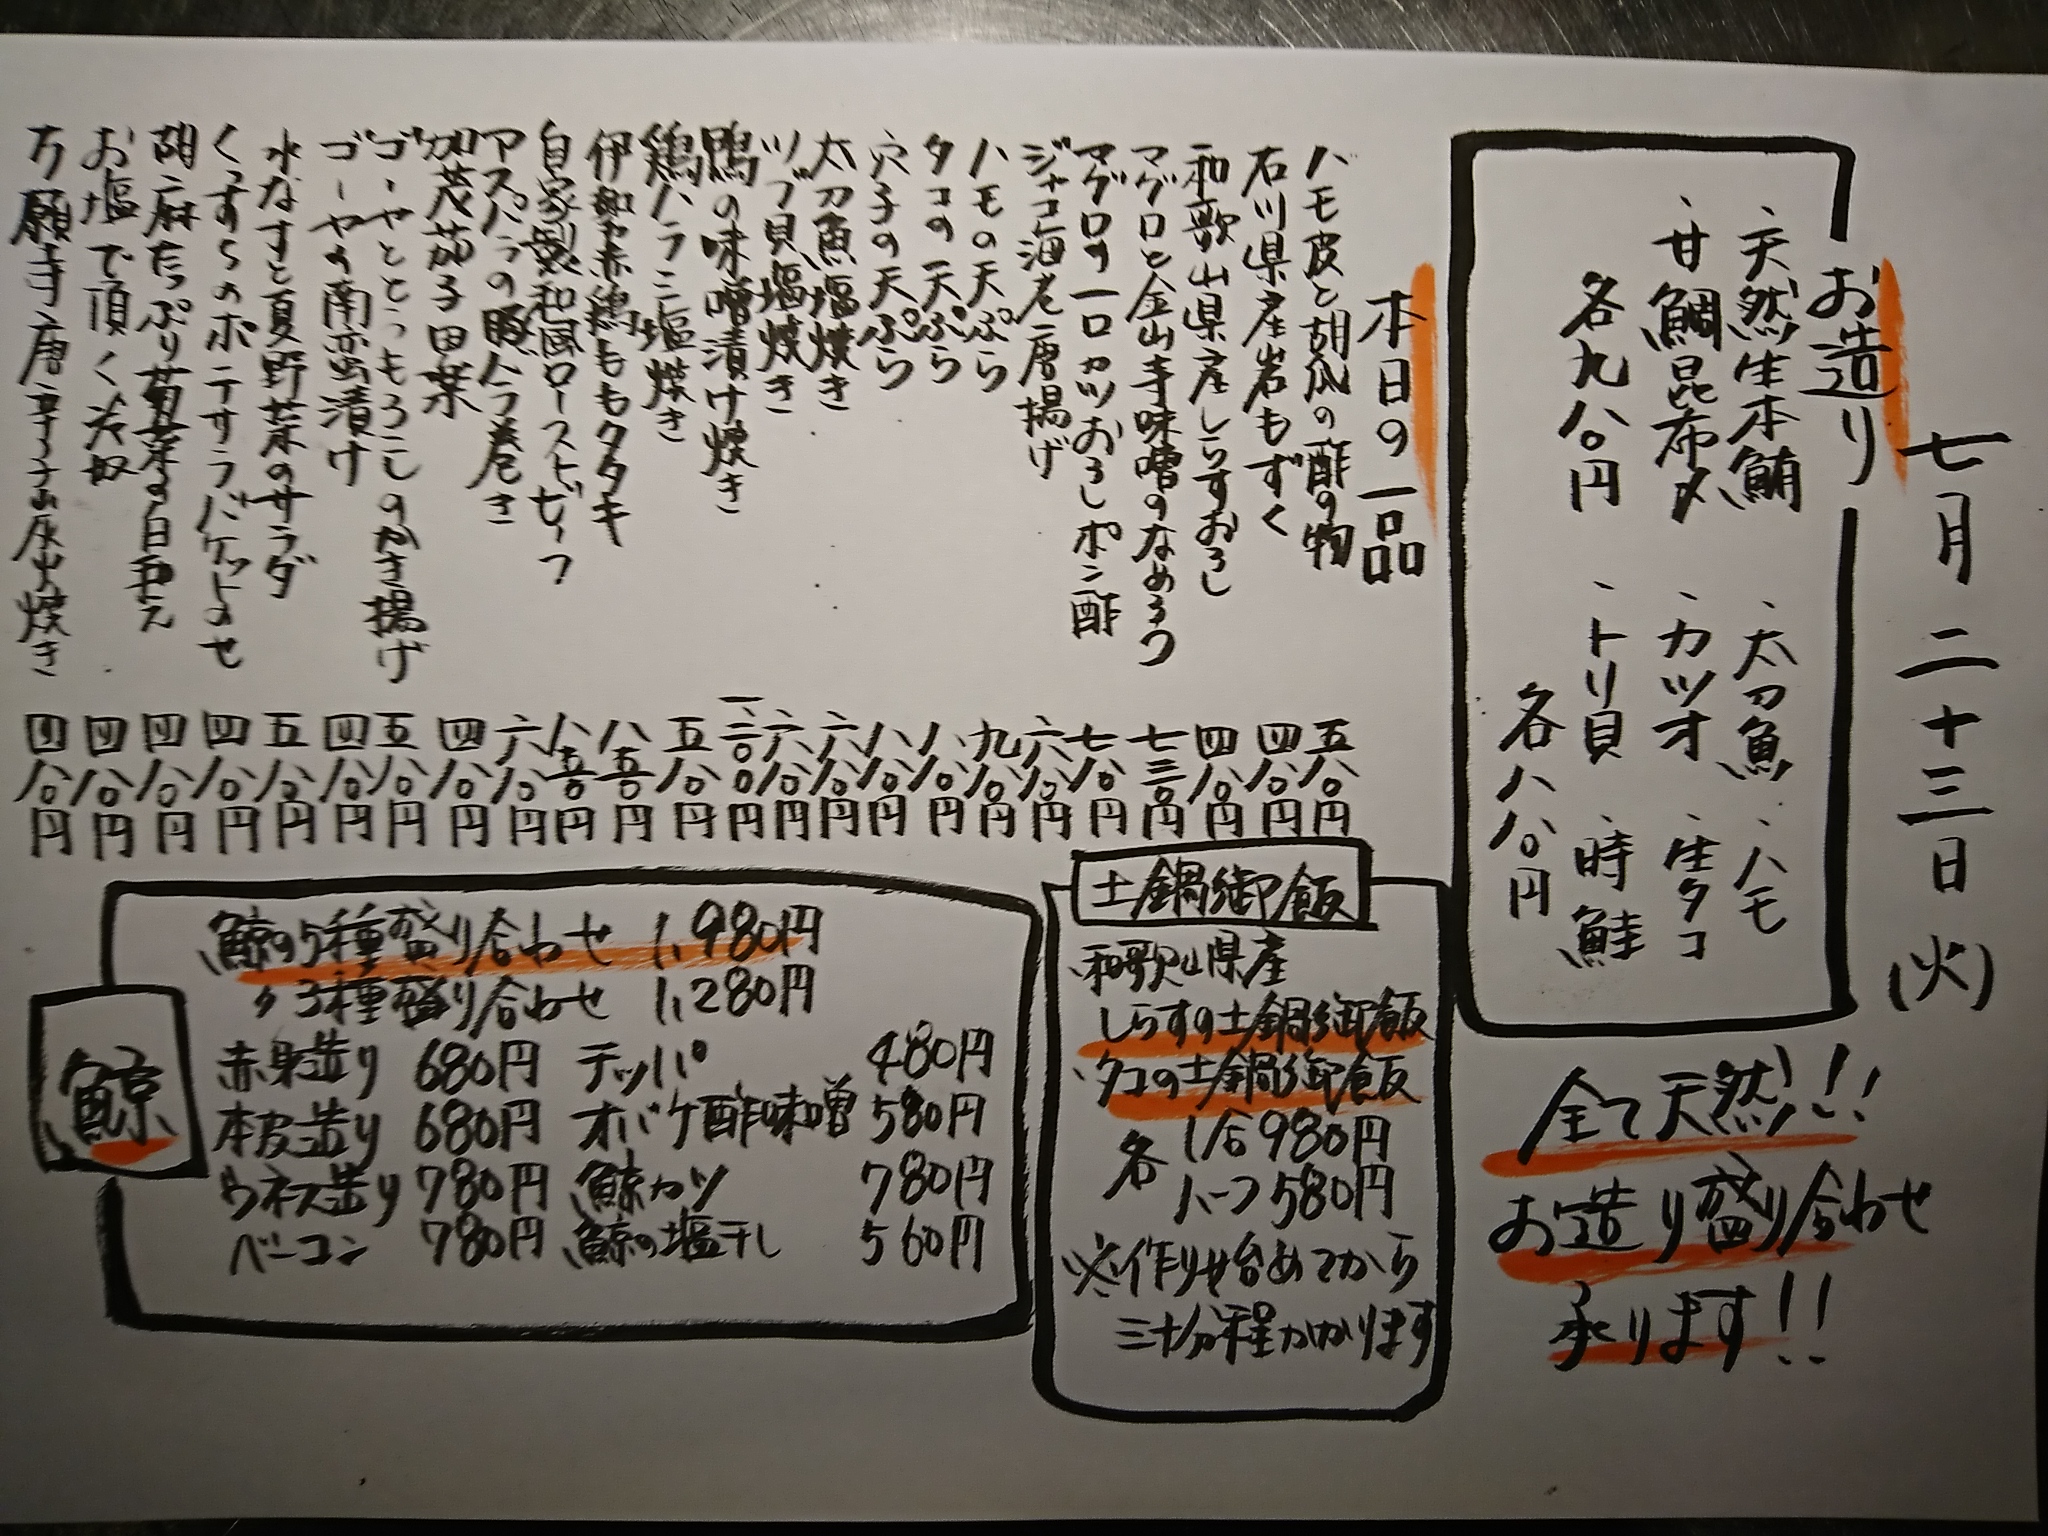 七月二十三日(火)
お造り
、天然生本鮪
、甘鯛昆布〆
各九八〇円
、太刀魚
、ハモ
、カツオ
、生タコ
、トリ貝
、時鮭
各八八〇円
全て天然!!
お造り盛り合わせ
承ります!!
本日の一品
ハモ皮と胡瓜の酢の物 五八〇円
石川県産岩もずく 四八〇円
和歌山県産しらすおろし 四八〇円
マグロと金山寺味噌のなめろう 七三〇円
マグロの一口カツおろしポン酢 七八〇円
ジャコ海老唐揚げ 六八〇円
ハモの天ぷら 九八〇円
タコの天ぷら 八八〇円
穴子の天ぷら 八八〇円
太刀魚塩焼き 六八〇円
ツブ貝塩焼き 六八〇円
鴨の味噌漬け焼き 一、二〇〇円
鶏ハラミ塩焼き 五八〇円
伊勢赤鶏ももタタキ 八五〇円
自家製和風ローストビーフ 八五〇円
アスパラの豚バラ巻き 六八〇円
加茂茄子田楽 四八〇円
ゴーヤととうもろこしのかき揚げ 五八〇円
ゴーヤの南蛮漬け 四八〇円
水なすと夏野菜のサラダ 五八〇円
くずし豆のポテサラバケットのせ 四八〇円
胡麻たっぷり菊菜の白和え 四八〇円
お塩で頂く冷奴 四八〇円
万願寺唐辛子山灰出焼き 四八〇円
土鍋御飯
、和歌山県産
しらすの土鍋御飯
、タコの土鍋御飯
各 1合980円
ハーフ580円
※作り始めてから
三十分程かかります
鯨
鯨の5種盛り合わせ 1,980円
〃3種盛り合わせ 1,280円
赤身造り 680円 テッパ 480円
本皮造り 680円 オバケ酢味噌 580円
ウネス造り 780円 鯨カツ 780円
ベーコン 780円 鯨の塩干し 560円